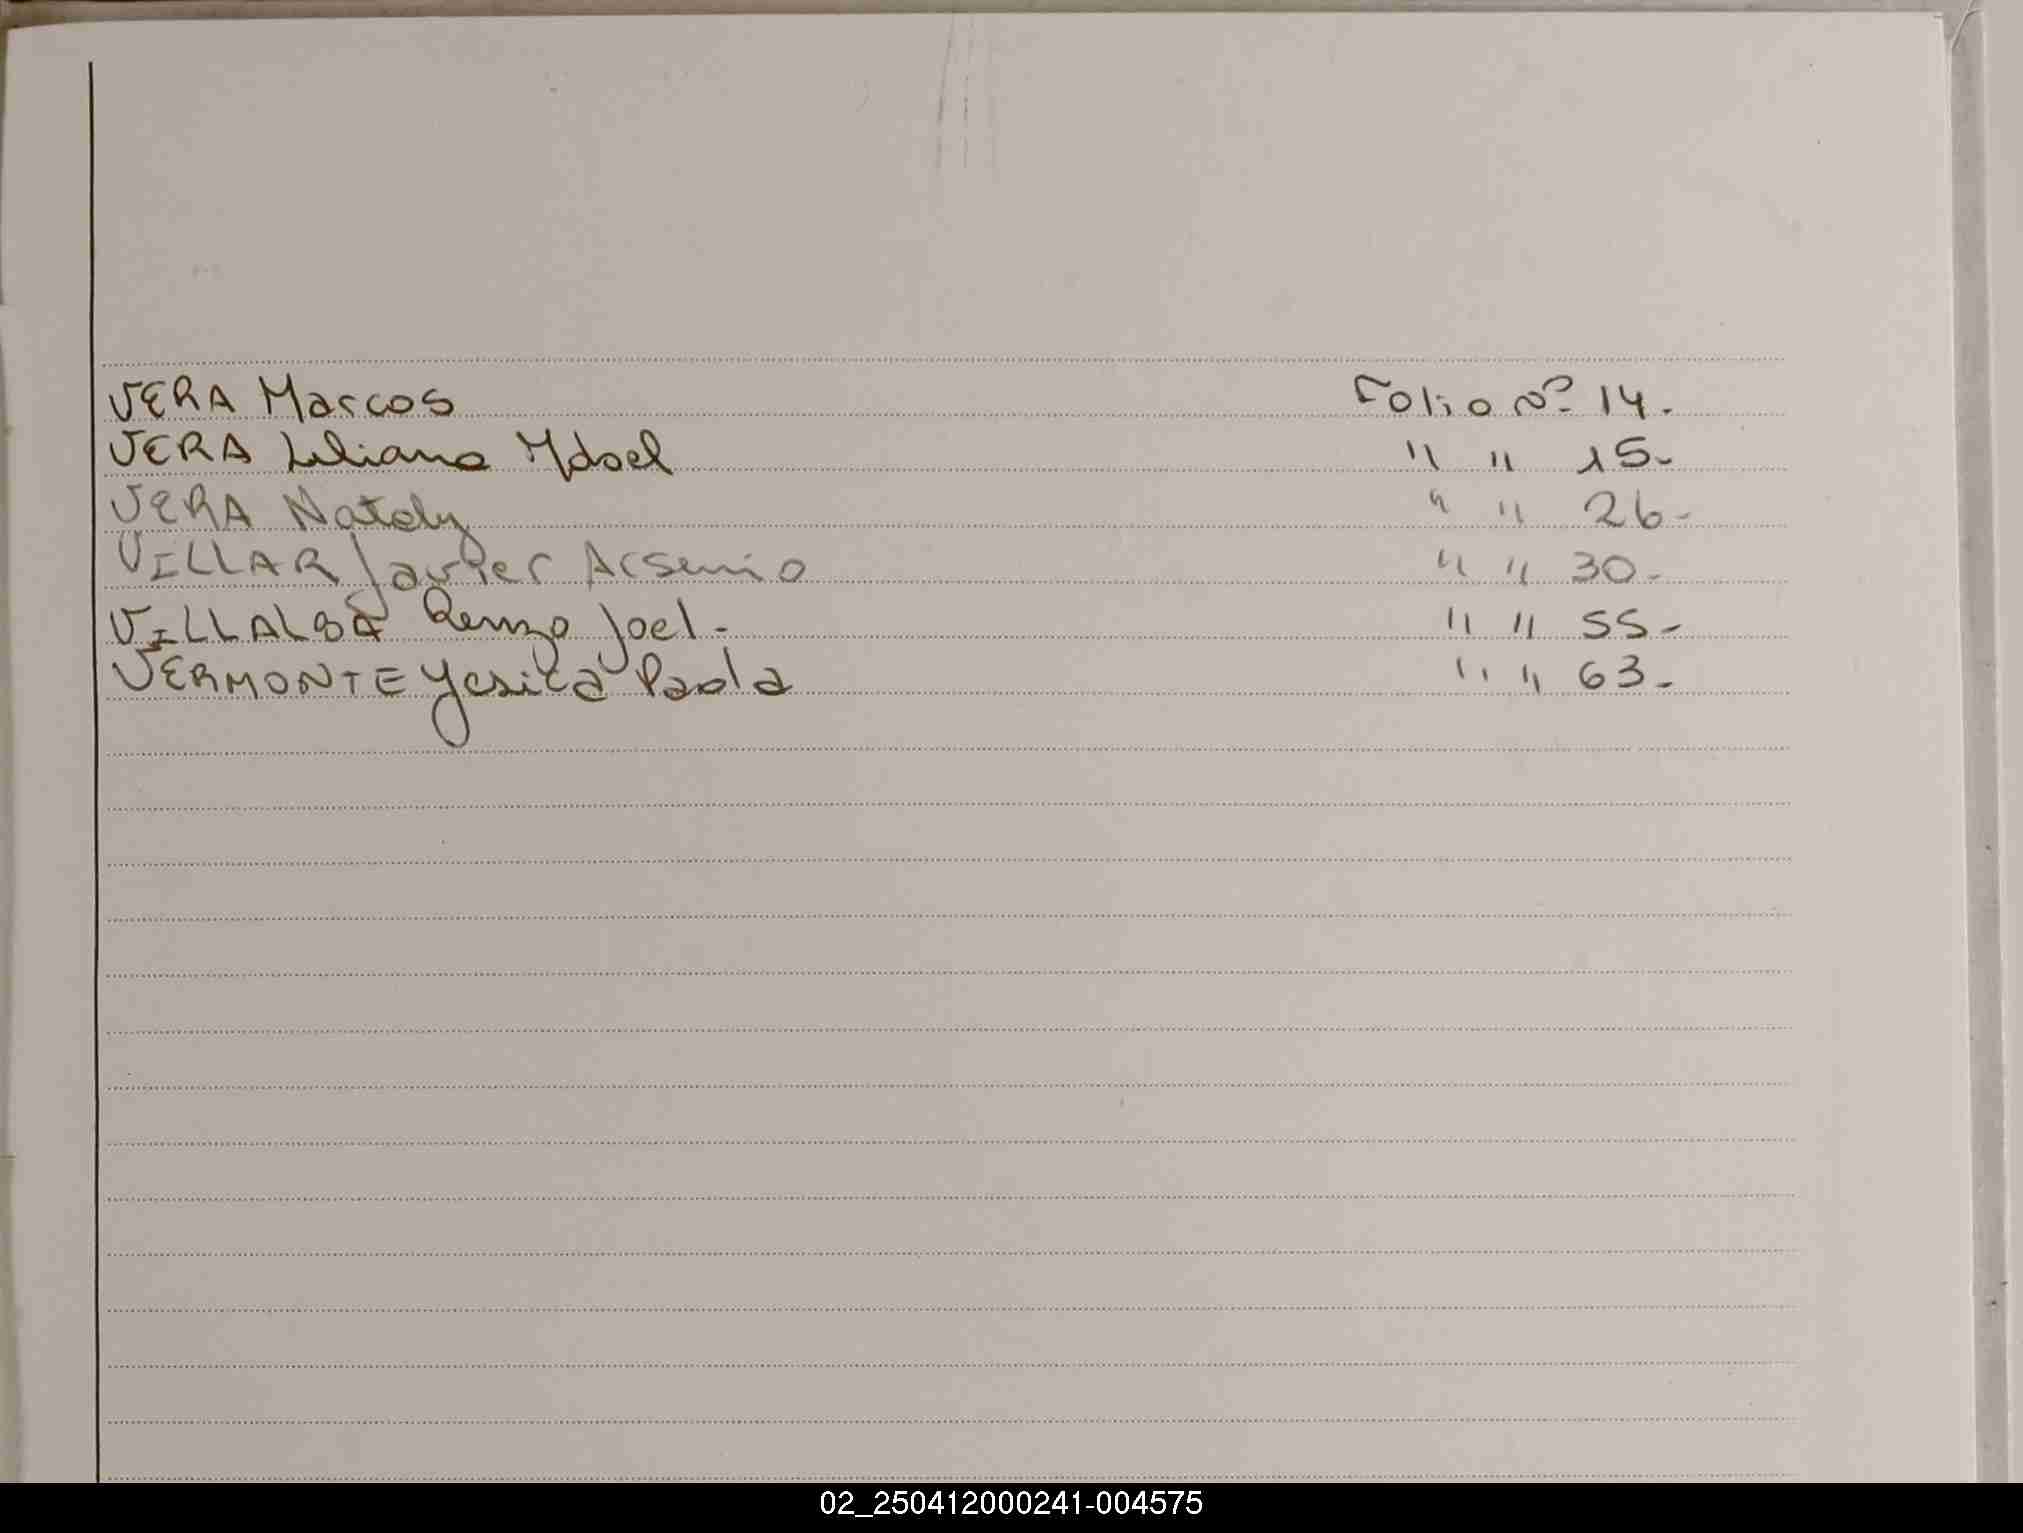 VERA Marcos Folio Nº 14.
VERA Liliana " " 15-
VERA Nataly " " 26-
VILLAR Javier Arsenio " " 30-
VILLALBA Renzo Joel- " " 55-
VERMONTE Yesica Paola " " 63-
02_250412000241-004575